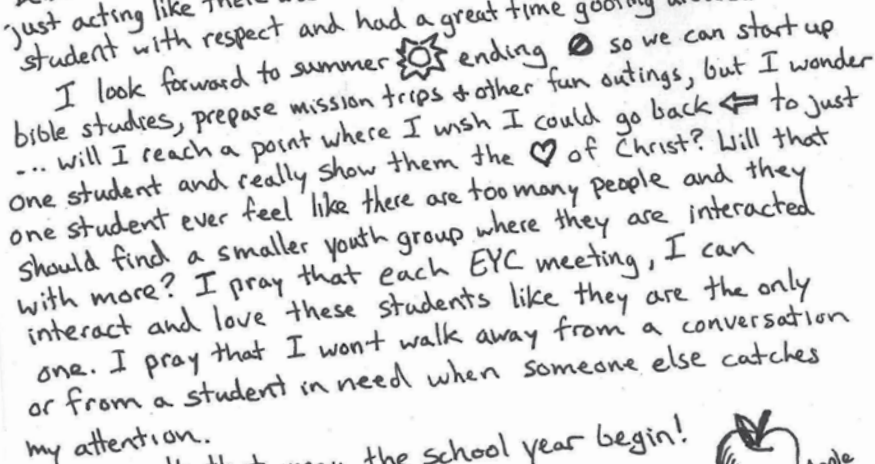 just acting like there
student with respect and had a great time goofing
I look forward to summer ending so we can start up
bible studies, prepare mission trips & other fun outings, but I wonder
... will I reach a point where I wish I could go back to just
one student and really show them the ♡ of Christ? Will that
one student ever feel like there are too many people and they
should find a smaller youth group where they are interacted
with more? I pray that each EYC meeting, I can
interact and love these students like they are the only
one. I pray that I wont walk away from a conversation
or from a student in need when someone else catches
my attention.
the school year begin!
Apple